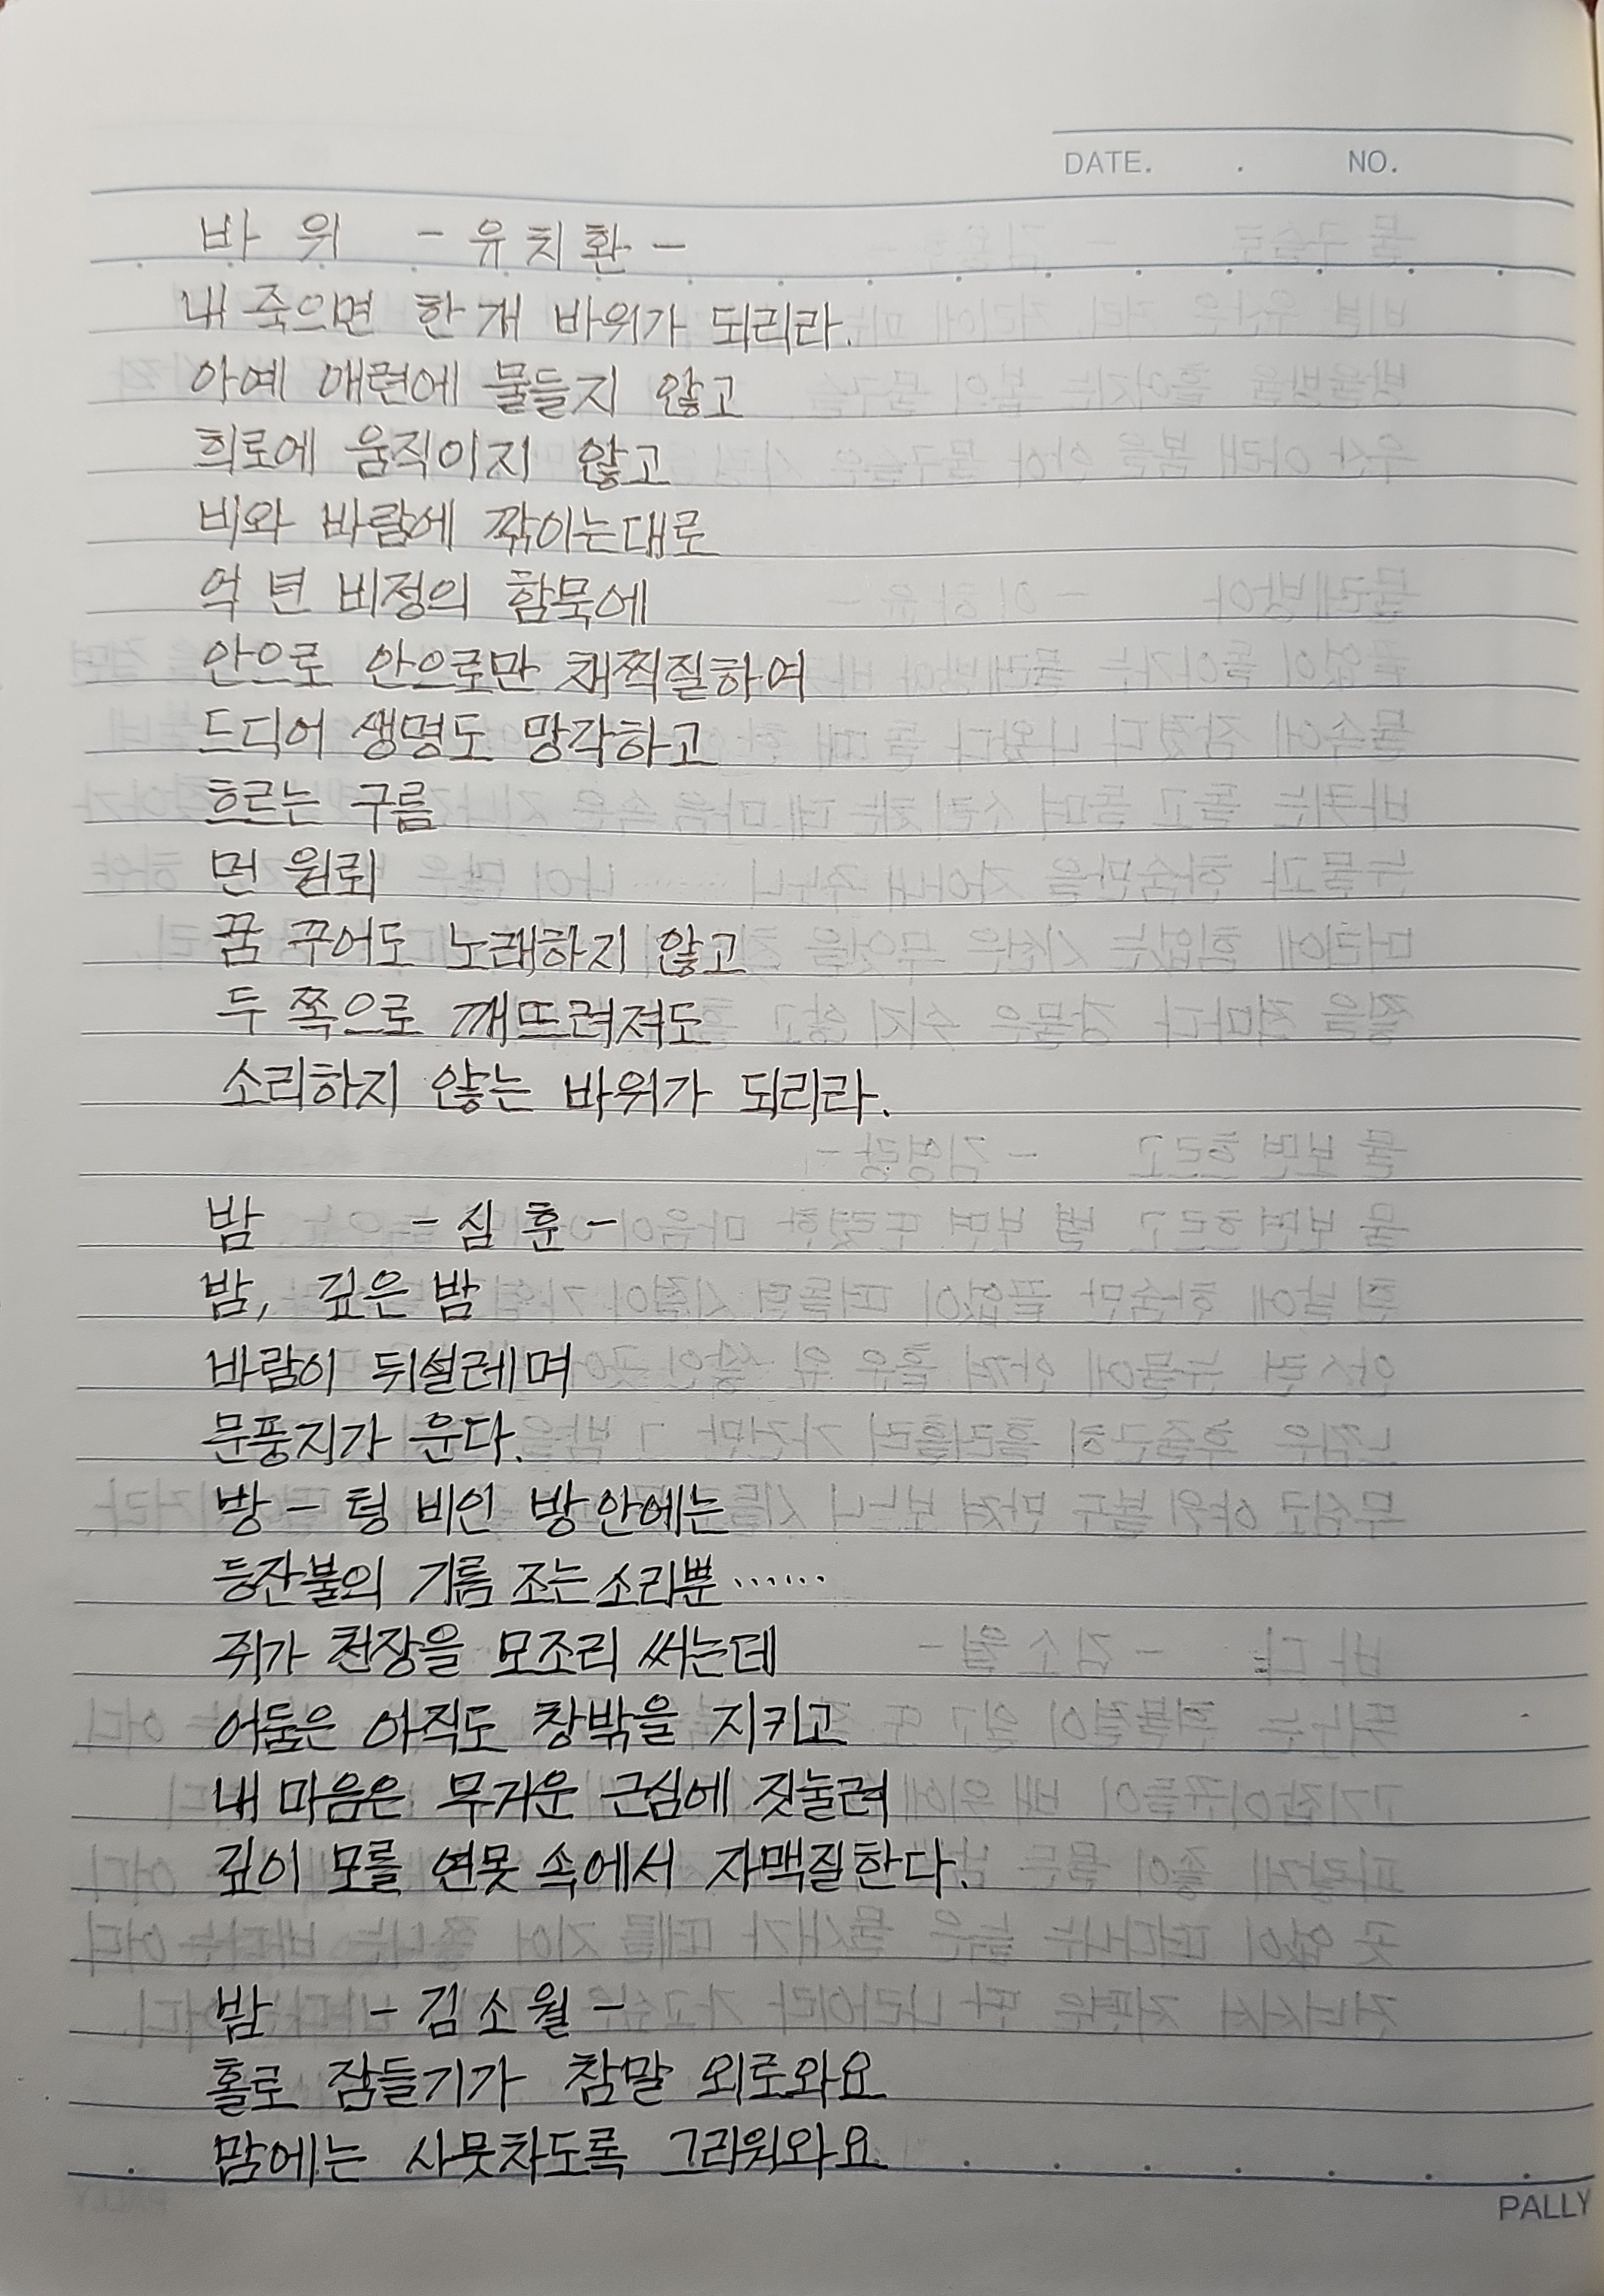 DATE. . NO.
바 위 - 유치환 -
내 죽으면 한 개 바위가 되리라.
아예 애련에 물들지 않고
희로에 움직이지 않고
비와 바람에 깎이는대로
억 년 비정의 함묵에
안으로 안으로만 채찍질하여
드디어 생명도 망각하고
흐르는 구름
먼 원뢰
꿈 꾸어도 노래하지 않고
두 쪽으로 깨뜨려져도
소리하지 않는 바위가 되리라.
밤 - 심 훈 -
밤, 깊은 밤
바람이 뒤설레며
문풍지가 운다.
방 - 텅 비인 방안에는
등잔불의 기름 조는소리뿐······
쥐가 천장을 모조리 써는데
어둠은 아직도 창밖을 지키고
내 마음은 무거운 근심에 짓눌려
깊이 모를 연못 속에서 자맥질한다.
밤 - 김소월 -
홀로 잠들기가 참말 외로와요
맘에는 사뭇차도록 그리워와요
PALLY